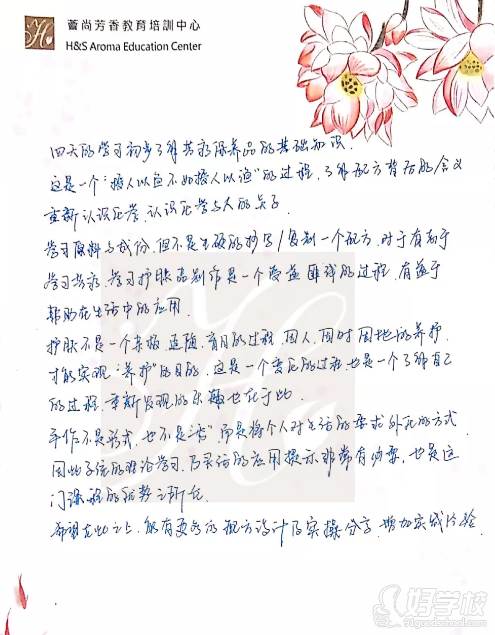 蕾尚芳香教育培訓中心
H&S Aroma Education Center
四天的学习初步了解芳疗保养品的基础知识.
这是一个"授人以鱼不如授人以渔"的过程,了解配方背后的含义
重新认识化学,认识化学与人的关系
学习原料与成份,但不是生硬的抄写/复制一个配方,对于有利于
学习芳疗,学习护肤品制作是一个受益匪浅的过程,有益于
帮助在生活中的应用.
护肤不是一个末梢,追随,盲目的过程,因人,因时因地的养护.
才能实现"养护"的目的.这是一个变化的过程,也是一个了解自己
的过程.重新发现的乐趣也在于此.
手作不是形式,也不是"秀"而是将个人对生活的要求外化的方式
因此系统的理论学习,及灵活的应用提示非常有必要,也是这
门课程的优势之所在.
希望在此之上,能有更多的配方设计及实操分享,增加实战经验
好学校
91goodschool.com